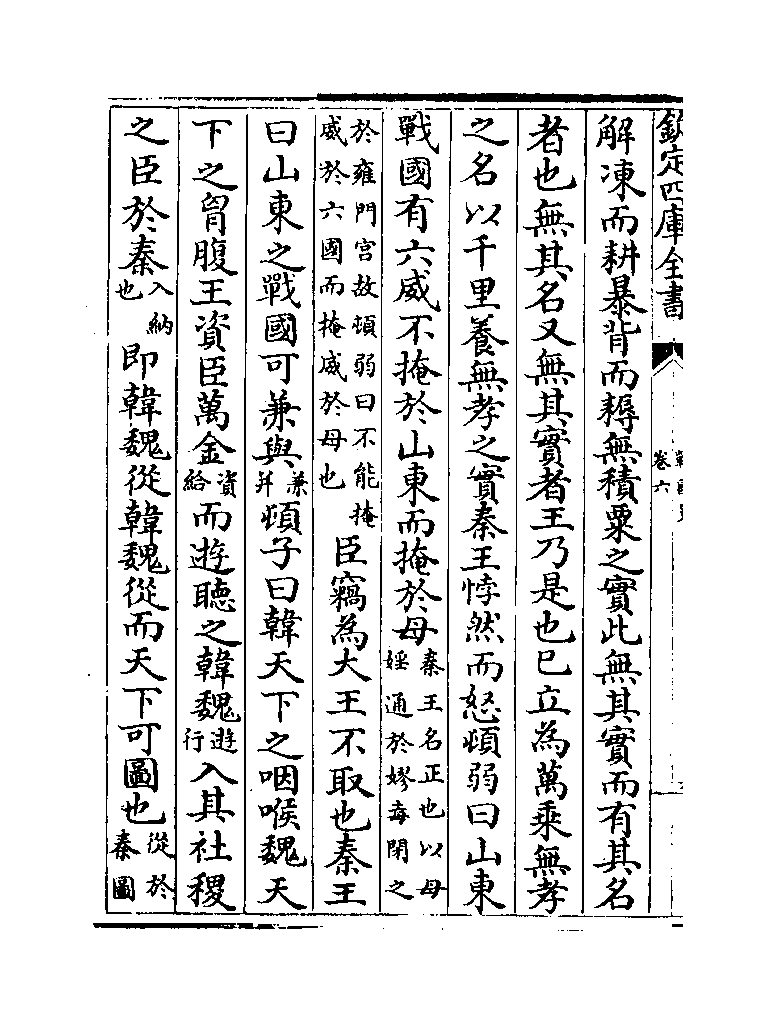 欽定四庫全書
卷六
解凍而耕暴背而耨無積粟之實此無其實而有其名
者也無其名又無其實者王乃是也已立為萬乘無孝
之名以千里養無孝之實秦王悖然而怒頓弱曰山東
戰國有六威不掩於山東而掩於母秦王名正也以母婬通於嫪毐閉之
於雍門宮故頓弱曰不能掩威於六國而掩威於母也臣竊為大王不取也秦王
曰山東之戰國可兼與兼并頓子曰韓天下之咽喉魏天
下之胷腹王資臣萬金資給而遊聽之韓魏遊行入其社稷
之臣於秦入納也即韓魏從韓魏從而天下可圖也從於秦圖